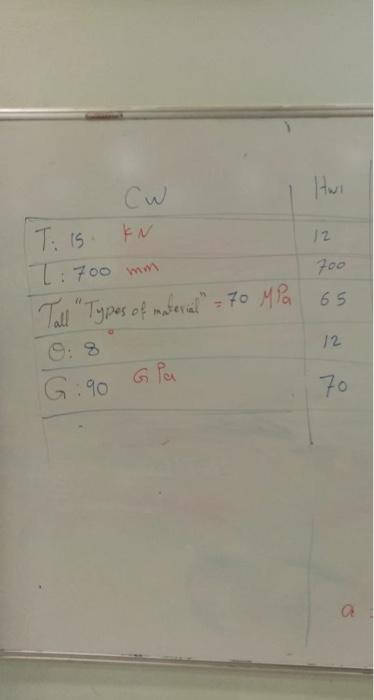 CW Hw1
T: 15 KN 12
L: 700 mm 700
Tall "Types of material" = 70 MPa 65
Θ: 8° 12
G: 90 GPa 70
a :